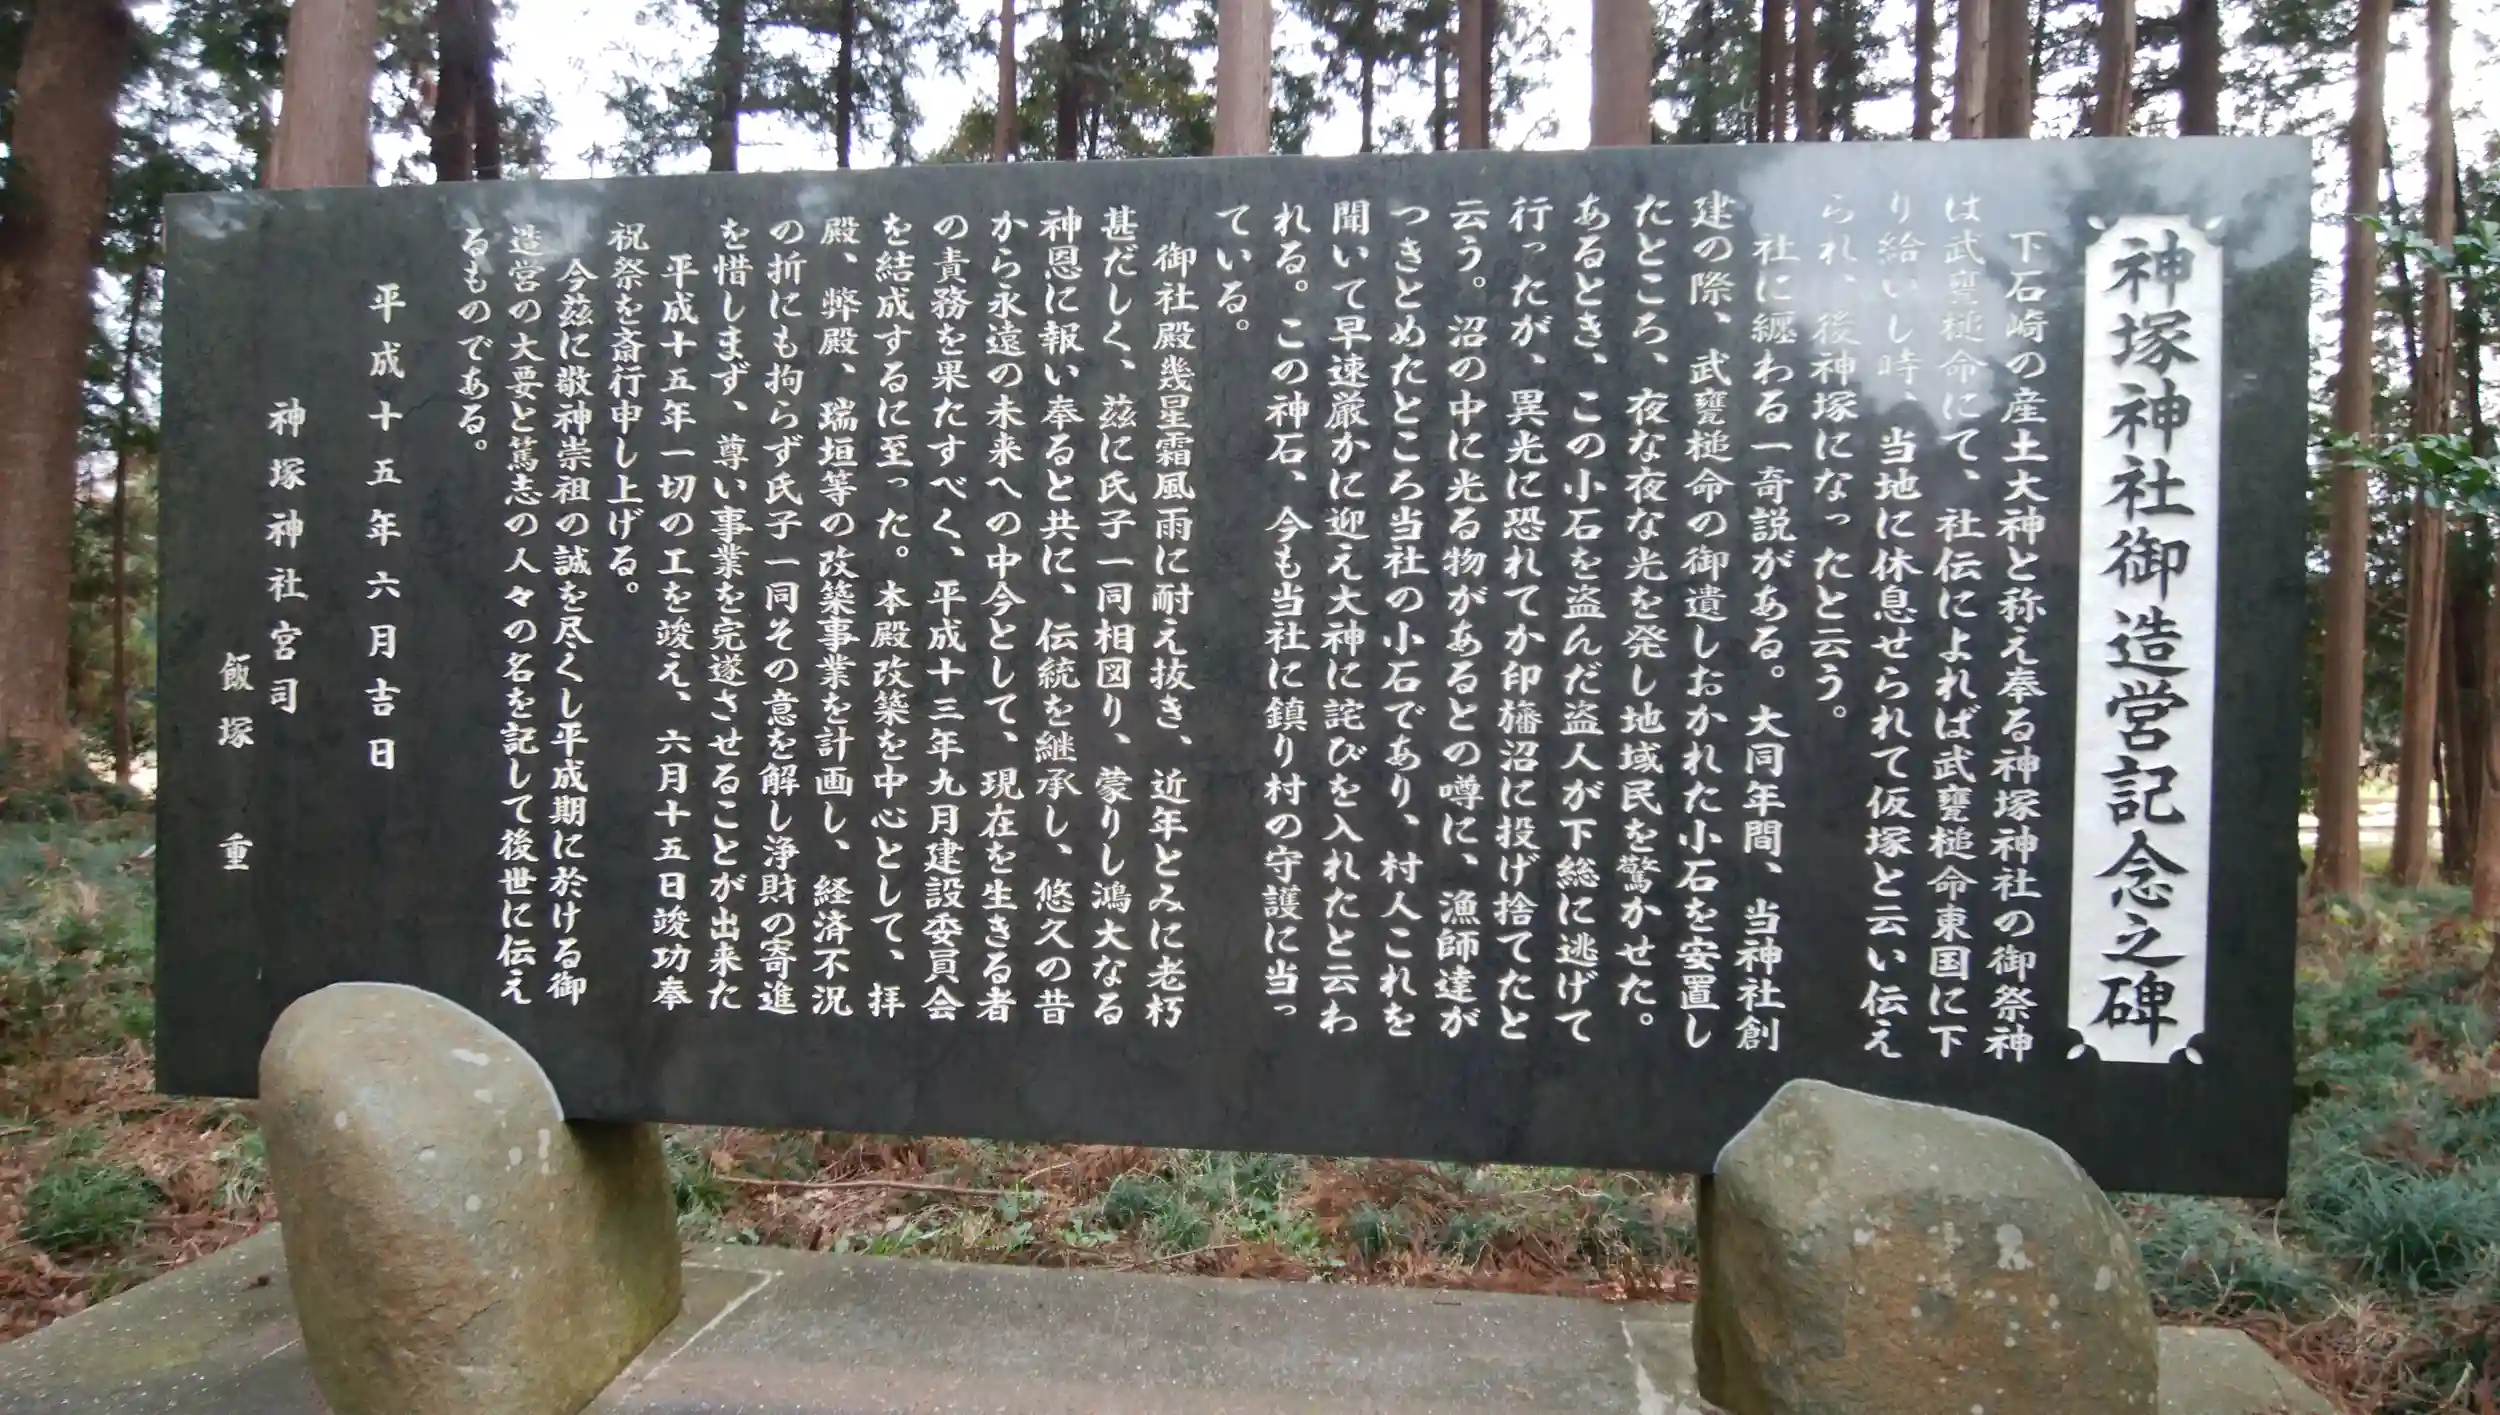 神塚神社御造営記念之碑
下石崎の産土大神と称え奉る神塚神社の御祭神
は武甕槌命にて、社伝によれば武甕槌命東国に下
り給いし時、当地に休息せられて仮塚と云い伝え
られ、後神塚になったと云う。
社に纏わる一奇説がある。大同年間、当神社創
建の際、武甕槌命の御遺しおかれた小石を安置し
たところ、夜な夜な光を発し地域民を驚かせた。
あるとき、この小石を盗んだ盗人が下総に逃げて
行ったが、異光に恐れてか印旛沼に投げ捨てたと
云う。沼の中に光る物があるとの噂に、漁師達が
つきとめたところ当社の小石であり、村人これを
聞いて早速厳かに迎え大神に詫びを入れたと云わ
れる。この神石、今も当社に鎮り村の守護に当っ
ている。
御社殿幾星霜風雨に耐え抜き、近年とみに老朽
甚だしく、茲に氏子一同相図り、蒙りし鴻大なる
神恩に報い奉ると共に、伝統を継承し、悠久の昔
から永遠の未来への中今として、現在を生きる者
の責務を果たすべく、平成十三年九月建設委員会
を結成するに至った。本殿改築を中心として、拝
殿、弊殿、瑞垣等の改築事業を計画し、経済不況
の折にも拘らず氏子一同その意を解し浄財の寄進
を惜しまず、尊い事業を完遂させることが出来た
平成十五年一切の工を竣え、六月十五日竣功奉
祝祭を斎行申し上げる。
今茲に敬神崇祖の誠を尽くし平成期に於ける御
造営の大要と篤志の人々の名を記して後世に伝え
るものである。
平成十五年六月吉日
神塚神社宮司
飯塚 重